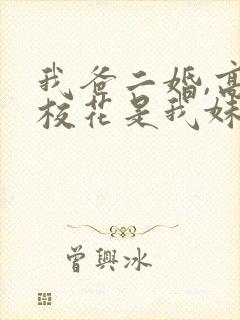 我爸二婚,高
校花是我妹
曾興冰